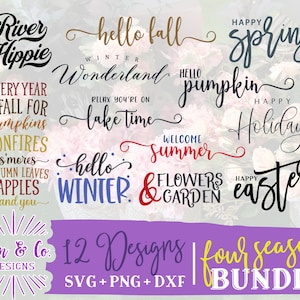 River
Hippie
hello fall
HAPPY
spring
WINTER
Wonderland
HELLO
pumpkin
RELAX YOU'RE ON
lake time
HAPPY
Holidays
VERY YEAR
FALL FOR
pumpkins
ONFIRES
s'mores
UTUMN LEAVES
APPLES
and you
WELCOME
summer
hello
WINTER
& FLOWERS
GARDEN
HAPPY
easter
& Co.
DESIGNS
12 Designs
SVG + PNG + DXF
four season
BUNDLE